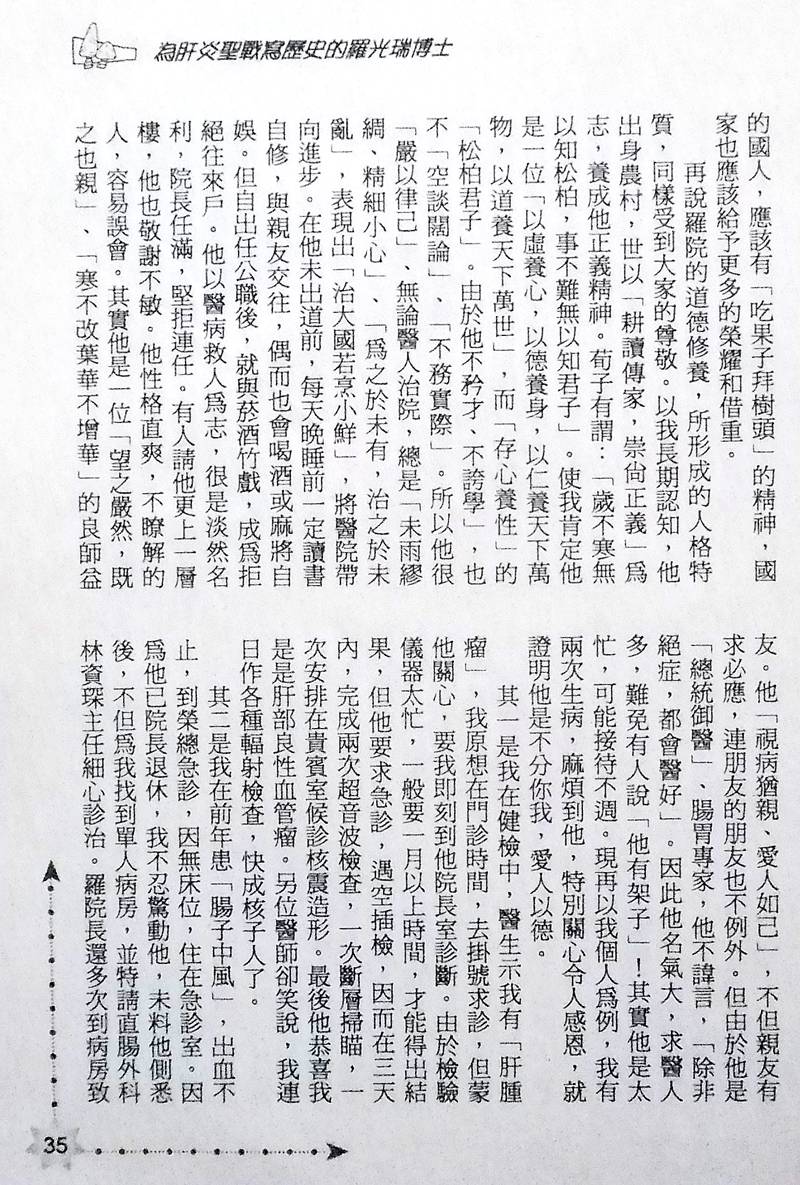 為肝炎聖戰寫歷史的羅光瑞博士
的國人，應該有「吃果子拜樹頭」的精神，國
家也應該給予更多的榮耀和借重。
再說羅院的道德修養，所形成的人格特
質，同樣受到大家的尊敬。以我長期認知，他
出身農村，世以「耕讀傳家，崇尚正義」爲
志，養成他正義精神。荀子有謂：「歲不寒無
以知松柏，事不難無以知君子」。使我肯定他
是一位「以虛養心，以德養身，以仁養天下萬
物，以道養天下萬世」，而「存心養性」的
「松柏君子」。由於他不矜才、不誇學」，也
不「空談闊論」、「不務實際」。所以他很
「嚴以律己」、無論醫人治院，總是「未雨繆
綢、精細小心」、「爲之於未有，治之於未
亂」，表現出「治大國若烹小鮮」，將醫院帶
向進步。在他未出道前，每天晚睡前一定讀書
自修，與親友交往，偶而也會喝酒或麻將自
娛。但自出任公職後，就與菸酒竹戲，成爲拒
絕往來戶。他以醫病救人爲志，很是淡然名
利，院長任滿，堅拒連任。有人請他更上一層
樓，他也敬謝不敏。他性格直爽，不瞭解的
人，容易誤會。其實他是一位「望之嚴然，既
之也親」、「寒不改葉華不增華」的良師益
友。他「視病猶親、愛人如己」，不但親友有
求必應，連朋友的朋友也不例外。但由於他是
「總統御醫」、腸胃專家，他不諱言，「除非
絕症，都會醫好」。因此他名氣大，求醫人
多，難免有人說「他有架子」！其實他是太
忙，可能接待不週。現再以我個人爲例，我有
兩次生病，麻煩到他，特別關心令人感恩，就
證明他是不分你我，愛人以德。
其一是我在健檢中，醫生示我有「肝腫
瘤」，我原想在門診時間，去掛號求診，但蒙
他關心，要我即刻到他院長室診斷。由於檢驗
儀器太忙，一般要一月以上時間，才能得出結
果，但他要求急診，遇空插檢，因而在三天
內，完成兩次超音波檢查，一次斷層掃瞄，一
次安排在貴賓室候診核震造形。最後他恭喜我
是是肝部良性血管瘤。另位醫師卻笑說，我連
日作各種輻射檢查，快成核子人了。
其二是我在前年患「腸子中風」，出血不
止，到榮總急診，因無床位，住在急診室。因
爲他已院長退休，我不忍驚動他，未料他側悉
後，不但爲我找到單人病房，並特請直腸外科
林資琛主任細心診治。羅院長還多次到病房致
35